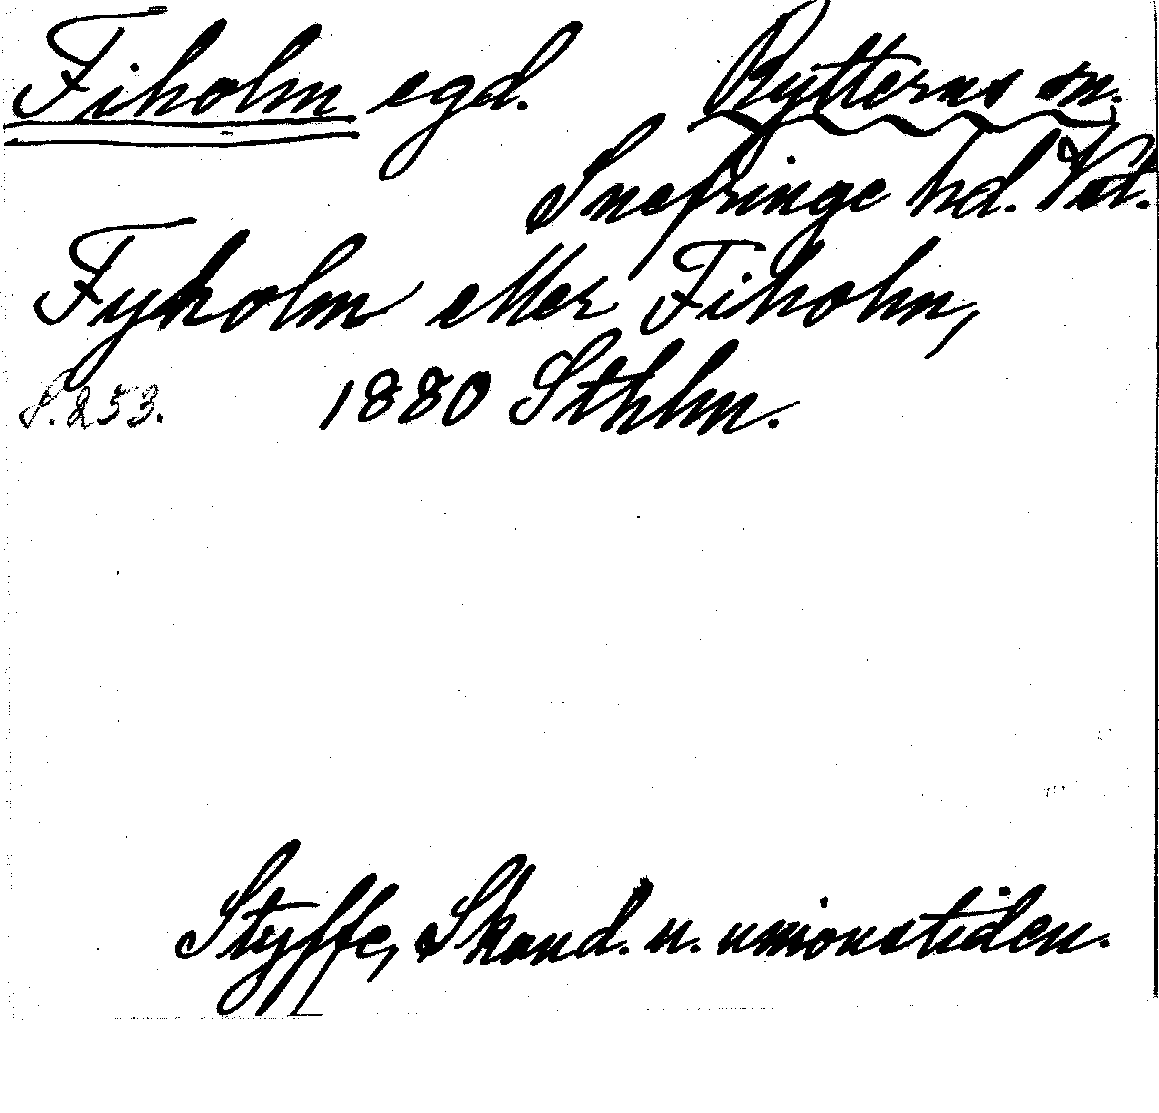 Fiholm egd. Rytterns sn.
Snefringe hd. Vstm.
Fyholm eller Fiholm,
S. 253. 1880 Sthlm.
Styffe, Skand. u. unionstiden.